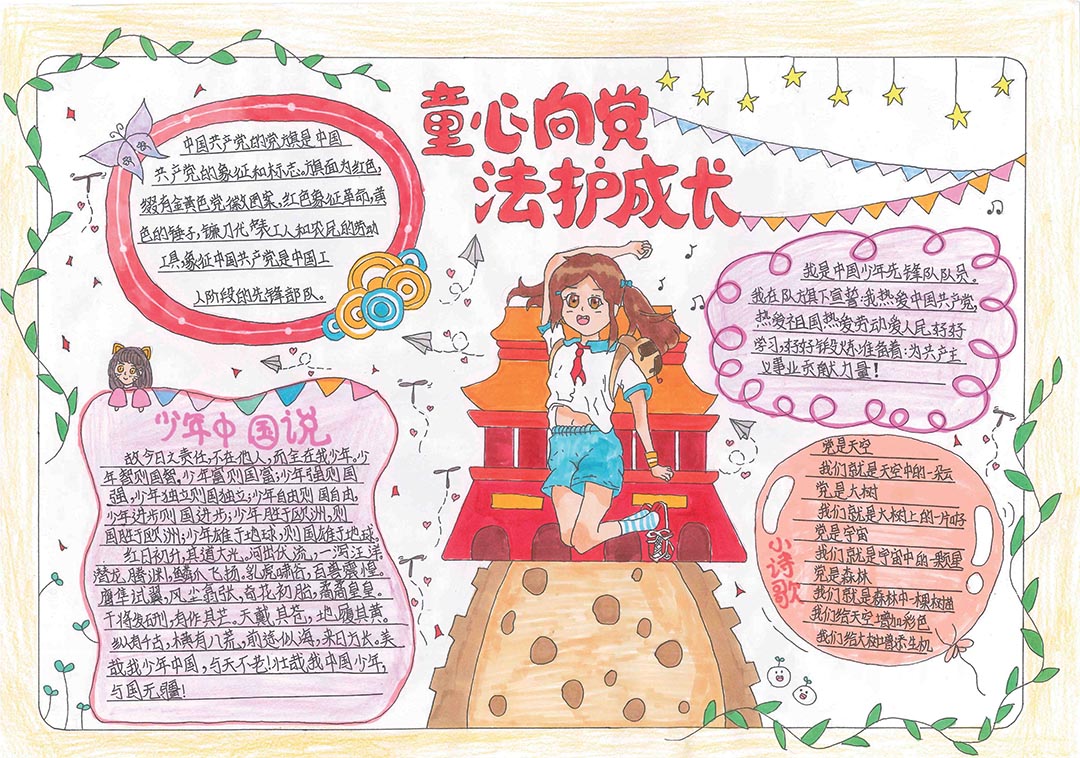 童心向党
法护成长
中国共产党的党旗是中国
共产党的象征和标志。旗面为红色,
缀有金黄色党徽图案。红色象征革命,黄
色的锤子,镰刀代表工人和农民的劳动
工具,象征中国共产党是中国工
人阶段的先锋部队。
我是中国少年先锋队队员。
我在队旗下宣誓:我热爱中国共产党,
热爱祖国热爱劳动爱人民好好
学习,好好锻炼,准备着:为共产主
义事业贡献力量!
少年中国说
故今日之责任,不在他人,而全在我少年。少
年智则国智,少年富则国富;少年强则国
强,少年独立则国独立;少年自由则国自由,
少年进步则国进步;少年胜于欧洲,则
国胜于欧洲;少年雄于地球,则国雄于地球。
红日初升,其道大光。河出伏流,一泻汪洋。
潜龙腾渊,鳞爪飞扬。乳虎啸谷,百兽震惶。
鹰隼试翼,风尘翕张。奇花初胎,矞矞皇皇。
干将发硎,有作其芒。天戴其苍,地履其黄。
纵有千古,横有八荒。前途似海,来日方长。美
哉我少年中国,与天不老!壮哉我中国少年,
与国无疆!
小诗歌
党是天空
我们就是天空中的一朵云
党是大树
我们就是大树上的一片叶
党是宇宙
我们就是宇宙中的一颗星
党是森林
我们就是森林中一棵树苗
我们给天空增加彩色
我们给大树增添生机